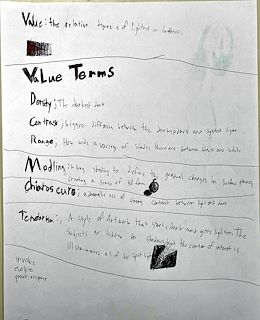 Value: the relative degree of lightness or darkness.
Value Terms
Density; The darkest dark
Contrast; biggest diffrence between the darkest dark and lightest light
Range; How wide a variety of shades there are between black and white
Modling; using shading to define the gradual changes in surface planes,
creating a sense of 3d form
Chiaroscuro; a dramatic use of strong contrast between light and dark
Tenebrism; A style of Artwork that stark dark and light The
subjects are hidden in shadows, but the center of interest is
illuminated as if by spot light
invoke
evoke